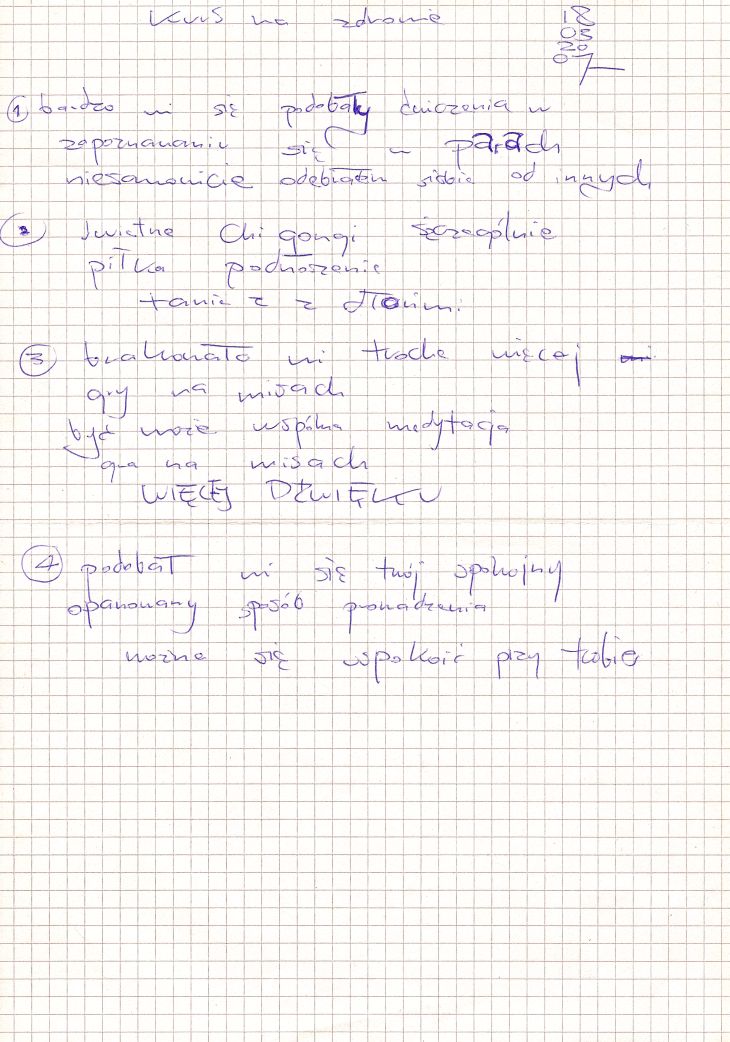 Kurs na zdrowie
18
05
20
07
① bardzo mi się podobały ćwiczenia w
zapoznawaniu się w parach
niesamowicie odebrałem siebie od innych
② świetne Chi gongi szczególnie
piłka podnoszenie
taniec z dłońmi
③ brakowało mi troche więcej
gry na misach
być może wspólna medytacja
gra na misach
WIĘCEJ DŹWIĘKU
④ podobał mi się twój spokojny
opanowany sposób prowadzenia
można się uspokoić przy tobie